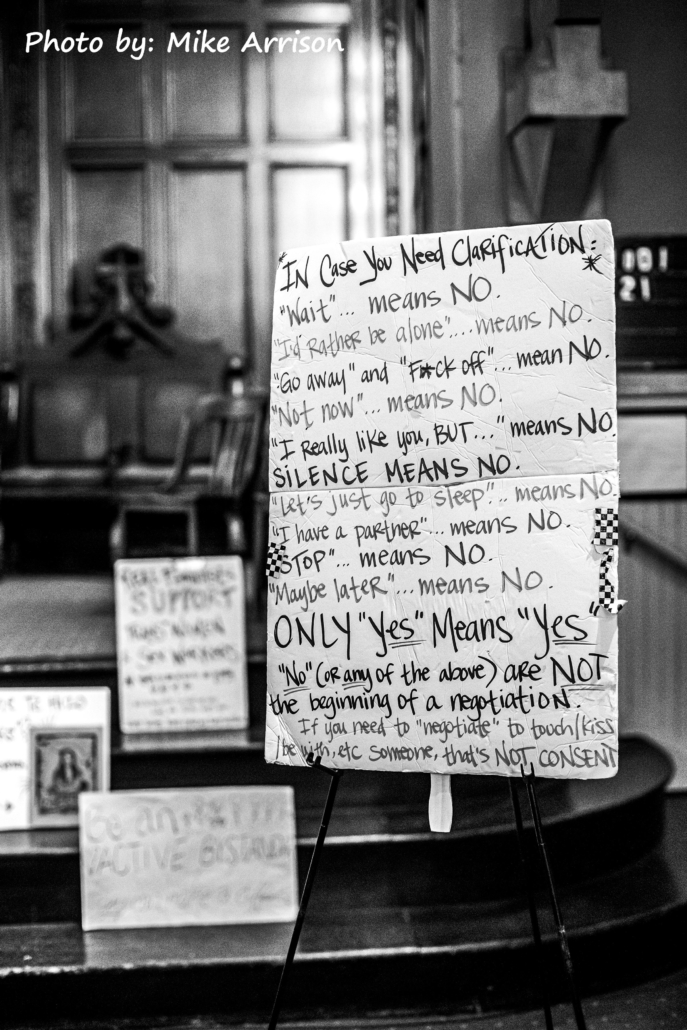 Photo by: Mike Arrison
*IN CASE YOU NEED CLARIFICATION:*
"Wait"... means NO.
"I'd Rather be alone"....means NO.
"Go away" and "F*ck off"... mean NO.
"Not now"... means NO.
"I Really like you, BUT..." means NO.
SILENCE MEANS NO.
"Let's just go to sleep"... means NO.
"I have a partner"... means NO.
"STOP"... means NO.
"Maybe later"... means NO.
ONLY "Yes" Means "Yes"
"No" (or any of the above) are NOT
the beginning of a negotiation.
If you need to "negotiate" to touch/kiss
/be with, etc someone, that's NOT CONSENT
001
21
SUPPORT
Be an